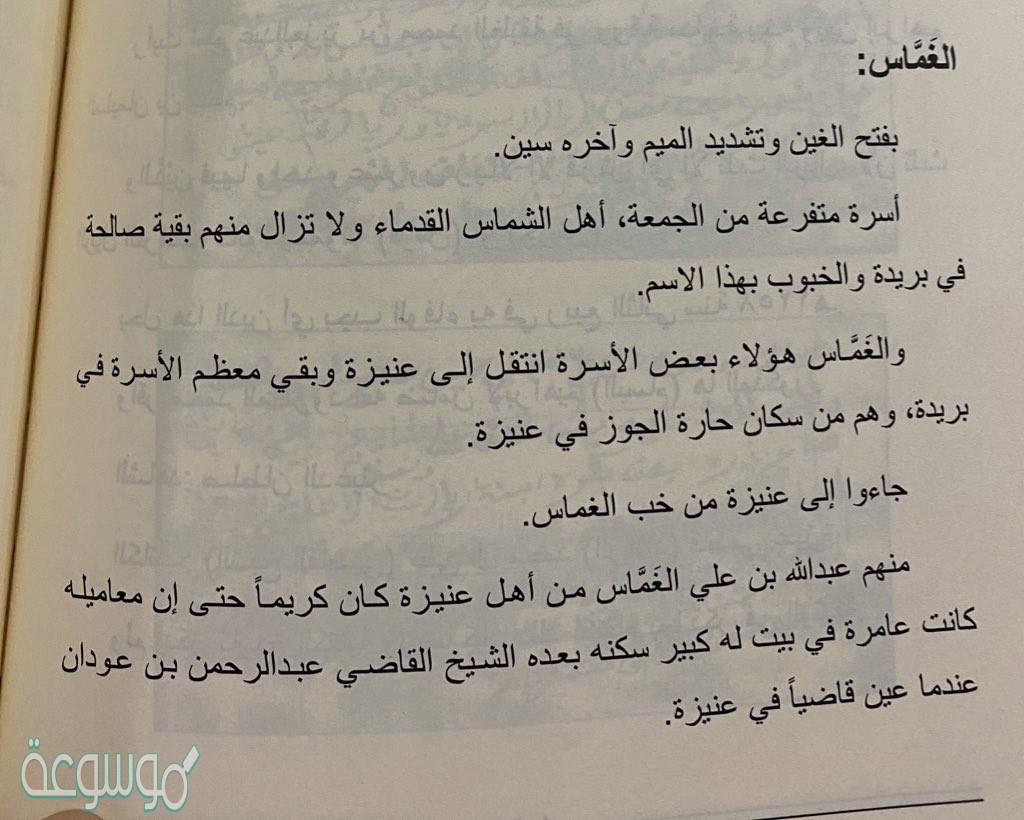 الغَمَّاس:
بفتح الغين وتشديد الميم وآخره سين.
أسرة متفرعة من الجمعة، أهل الشماس القدماء ولا تزال منهم بقية صالحة
في بريدة والخبوب بهذا الاسم.
والغَمَّاس هؤلاء بعض الأسرة انتقل إلى عنيزة وبقي معظم الأسرة في
بريدة، وهم من سكان حارة الجوز في عنيزة.
جاءوا إلى عنيزة من خب الغماس.
منهم عبدالله بن علي الغَمَّاس من أهل عنيزة كان كريماً حتى إن معاميله
كانت عامرة في بيت له كبير سكنه بعده الشيخ القاضي عبدالرحمن بن عودان
عندما عين قاضياً في عنيزة.
موسوعة